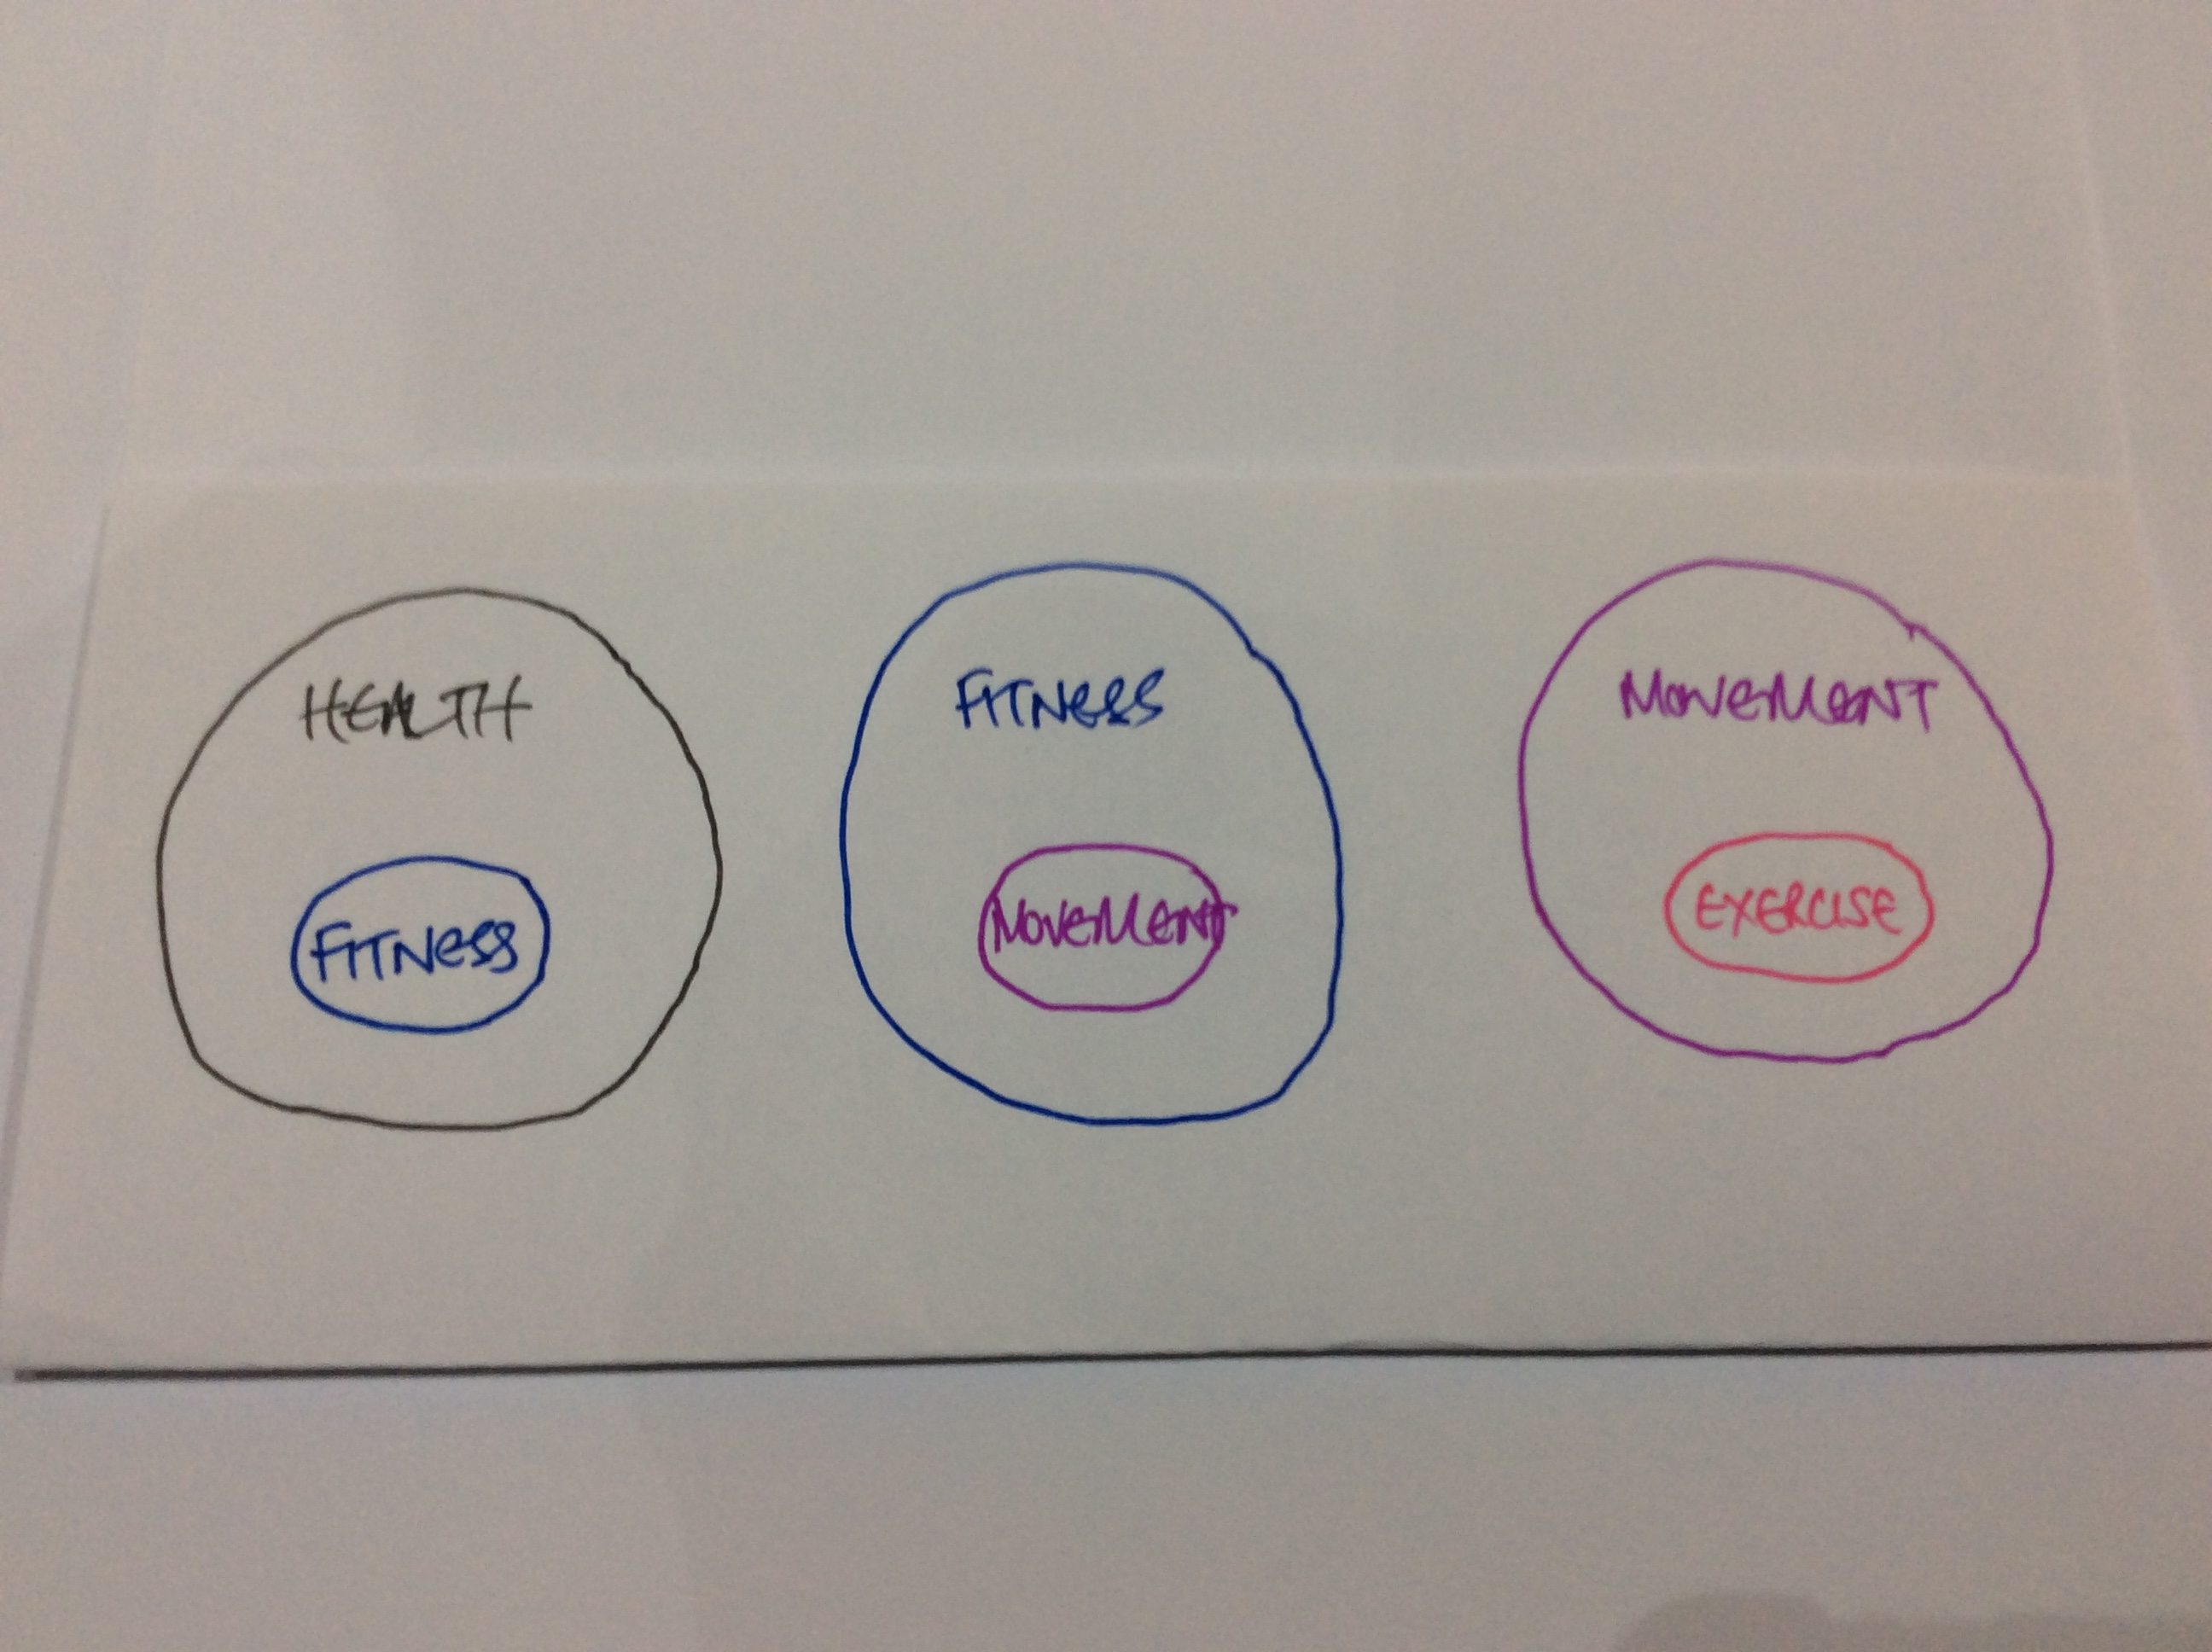 HEALTH
FITNESS
FITNESS
MOVEMENT
MOVEMENT
EXERCISE